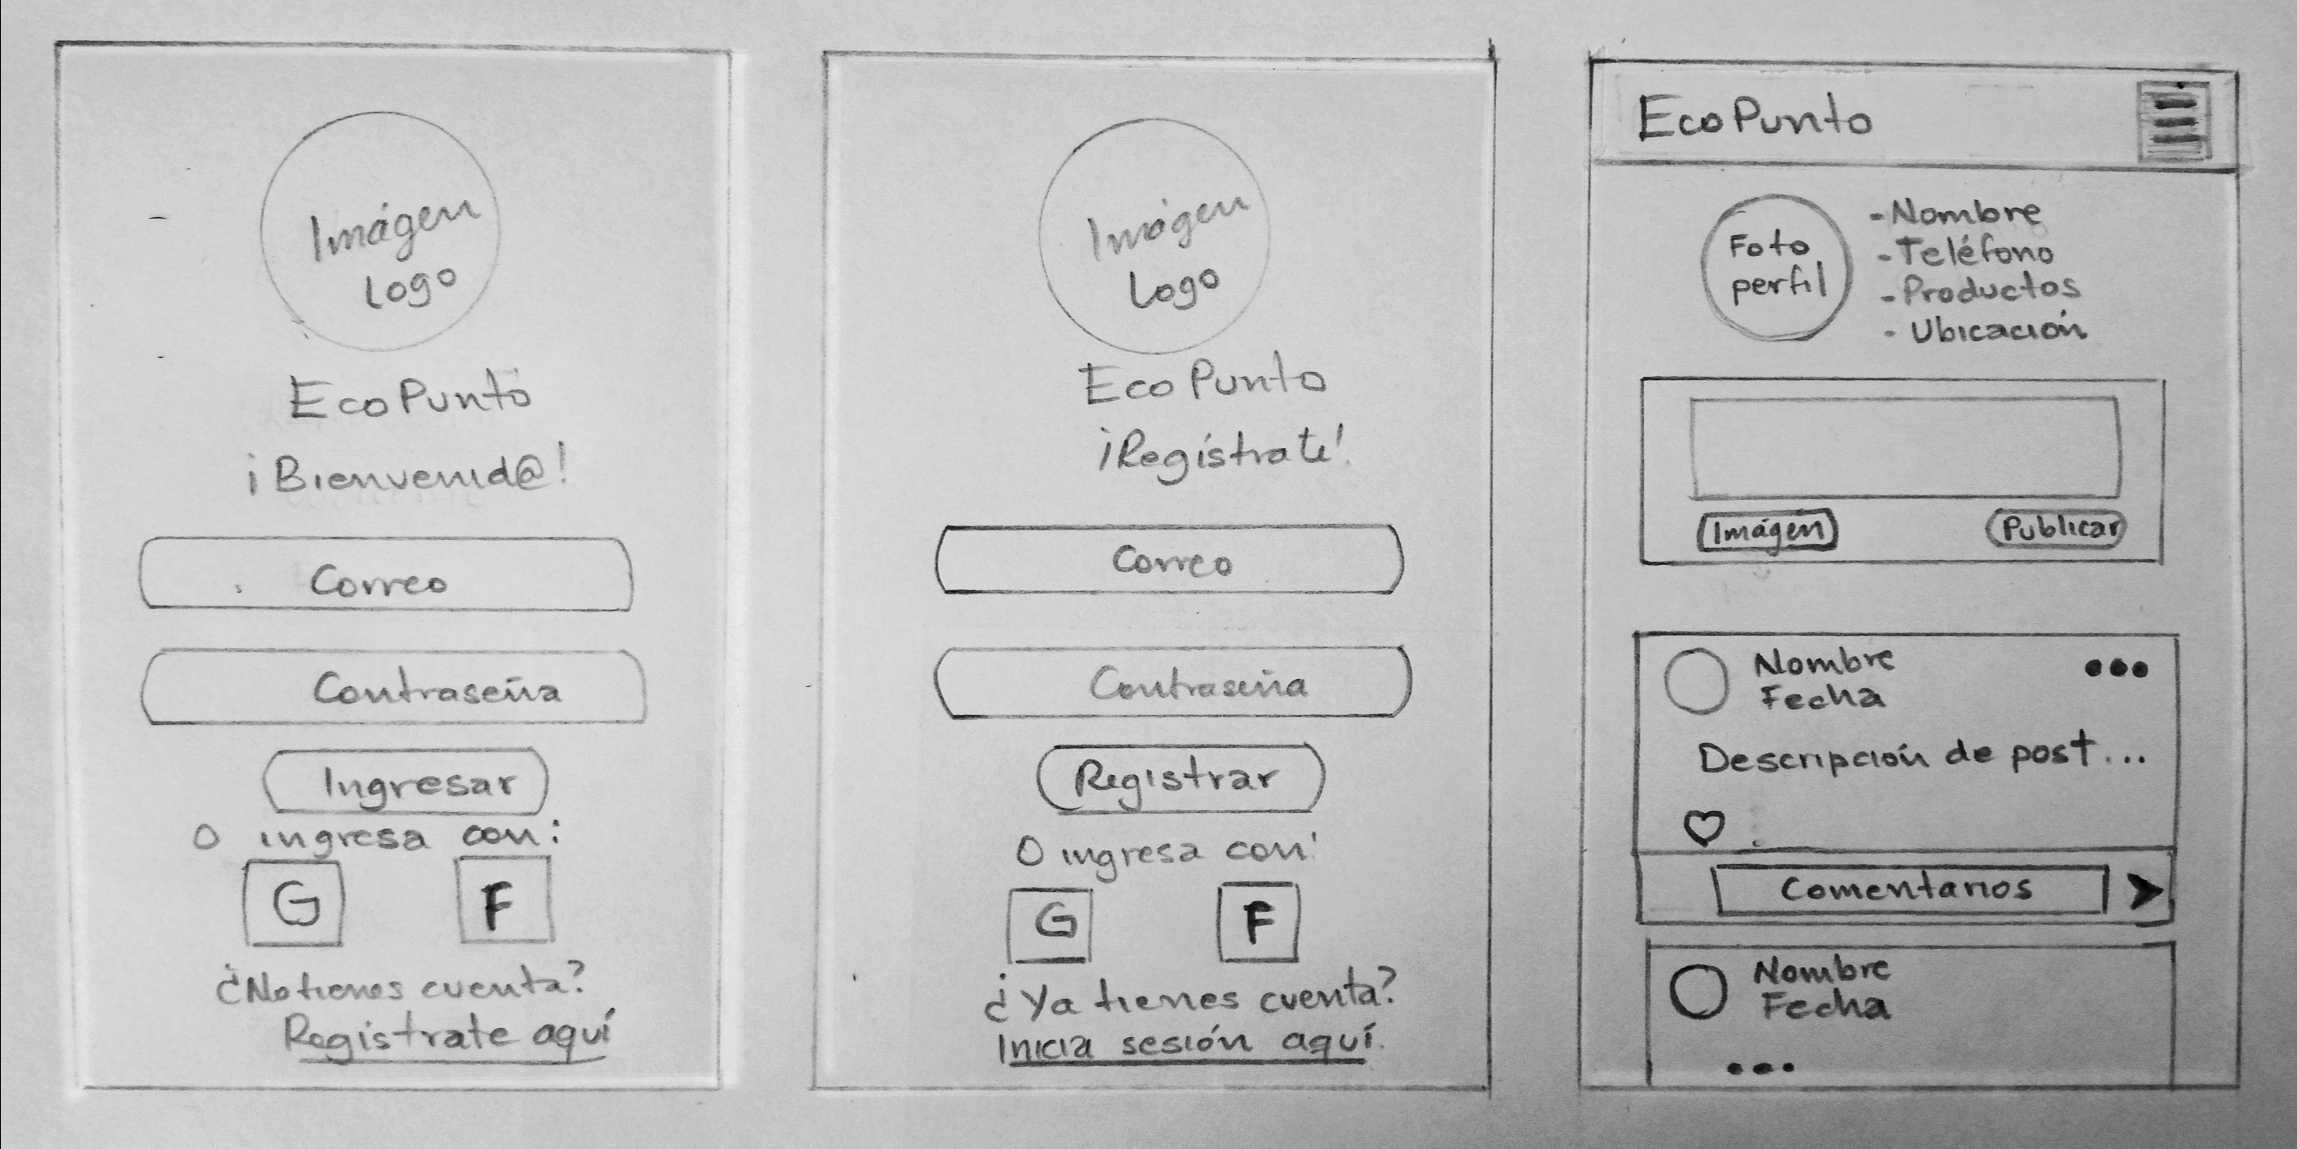 Imágen
Logo
EcoPunto
¡Bienvenid@!
Correo
Contraseña
Ingresar
O ingresa con:
G F
¿No tienes cuenta?
Registrate aquí
Imágen
Logo
EcoPunto
¡Regístrate!
Correo
Contraseña
Registrar
O ingresa con:
G F
¿Ya tienes cuenta?
Inicia sesión aquí.
EcoPunto
Foto
perfil
- Nombre
- Teléfono
- Productos
- Ubicación
Imágen Publicar
Nombre
Fecha
Descripción de post...
Comentarios
Nombre
Fecha